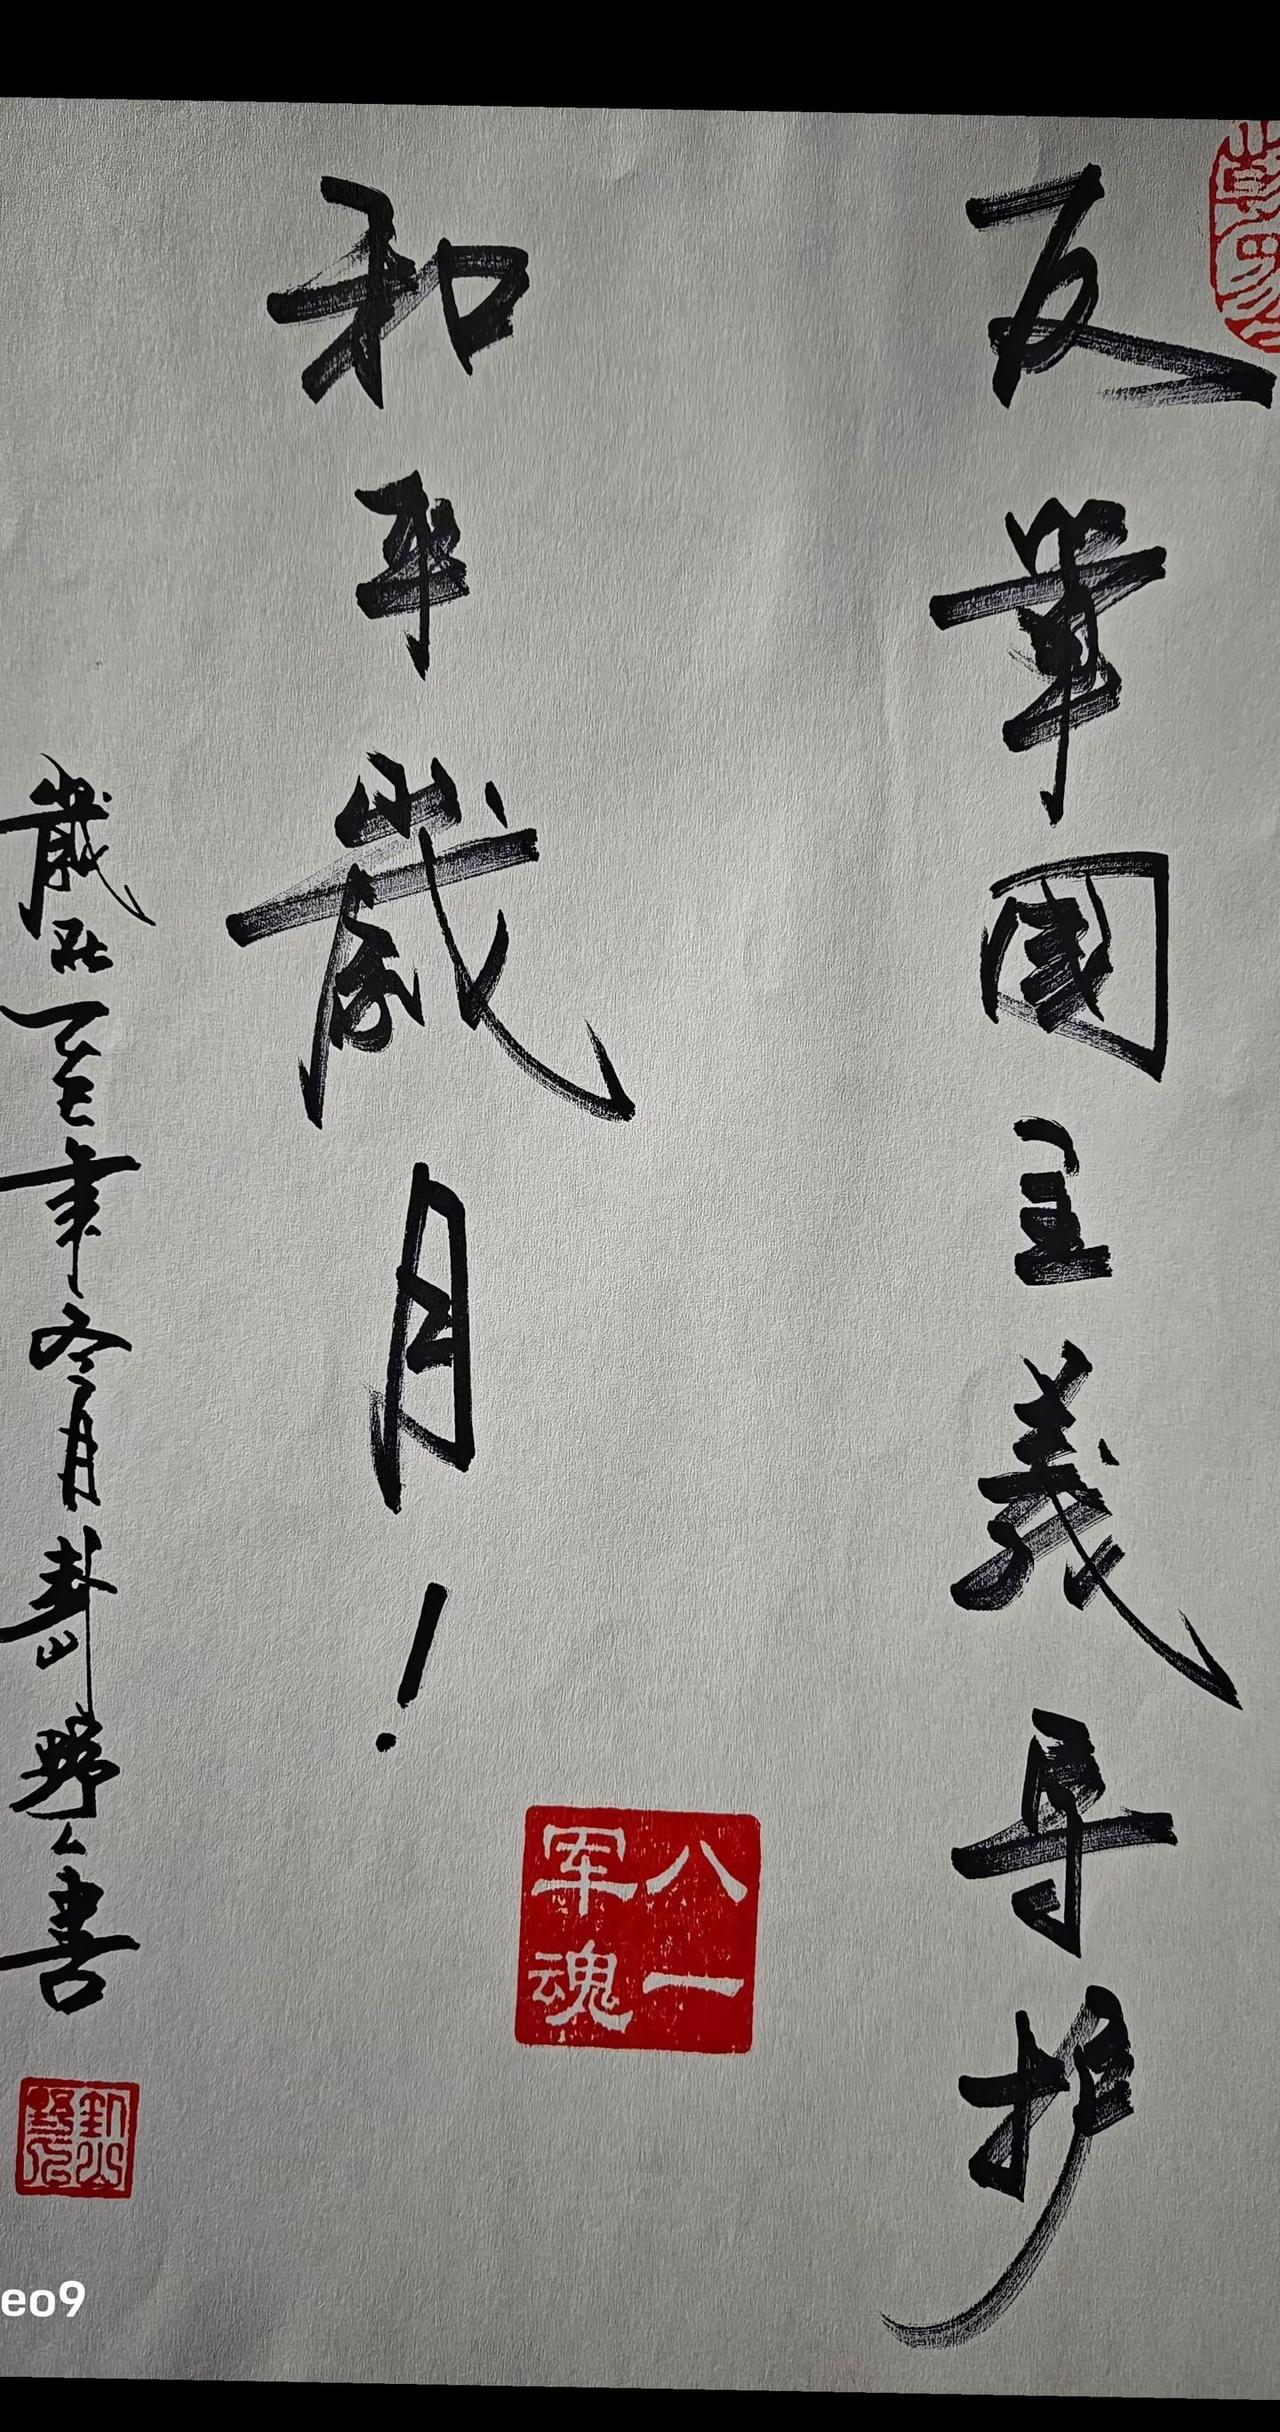 反軍國主義护
和平歲月！
歲在乙巳年冬月山野人書
八一军魂
eo9